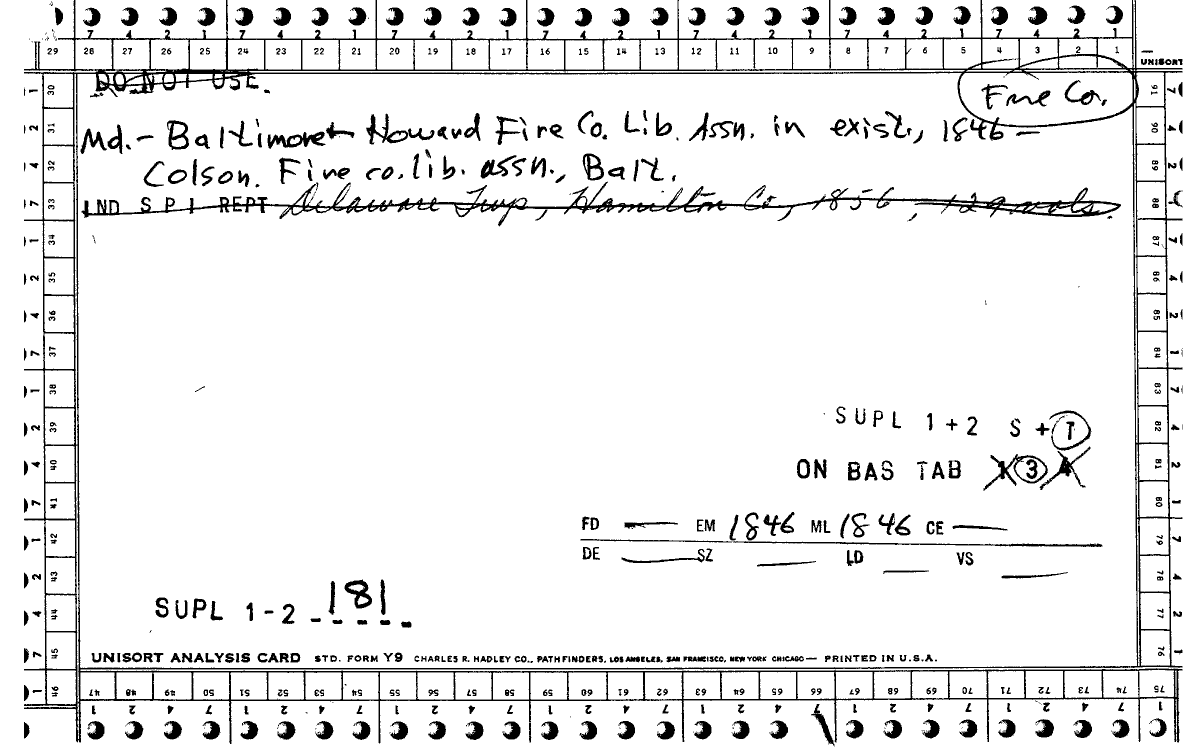 7 4 2 1 7 4 2 1 7 4 2 1 7 4 2 1 7 4 2 1 7 4 2 1 7 4 2 1
29 28 27 26 25 24 23 22 21 20 19 18 17 16 15 14 13 12 11 10 9 8 7 6 5 4 3 2 1
UNISORT
DO NOT USE.
Fire Co.
Md. - Baltimore - Howard Fire Co. Lib. Assn. in exist., 1846 -
Colson. Fire co. lib. assn., Balt.
IND S P I REPT Delaware Twp, Hamilton Co, 1856, 129 vols.
SUPL 1 + 2 S + T
ON BAS TAB 1 3 4
FD — EM 1846 ML 1846 CE —
DE — SZ — LD — VS —
SUPL 1 - 2 181
UNISORT ANALYSIS CARD STD. FORM Y9 CHARLES R. HADLEY CO., PATHFINDERS, LOS ANGELES, SAN FRANCISCO, NEW YORK CHICAGO — PRINTED IN U.S.A.
30 31 32 33 34 35 36 37 38 39 40 41 42 43 44 45 46
91 90 89 88 87 86 85 84 83 82 81 80 79 78 77 76
47 48 49 50 51 52 53 54 55 56 57 58 59 60 61 62 63 64 65 66 67 68 69 70 71 72 73 74 75
1 2 4 7 1 2 4 7 1 2 4 7 1 2 4 7 1 2 4 7 1 2 4 7 1 2 4 7 1